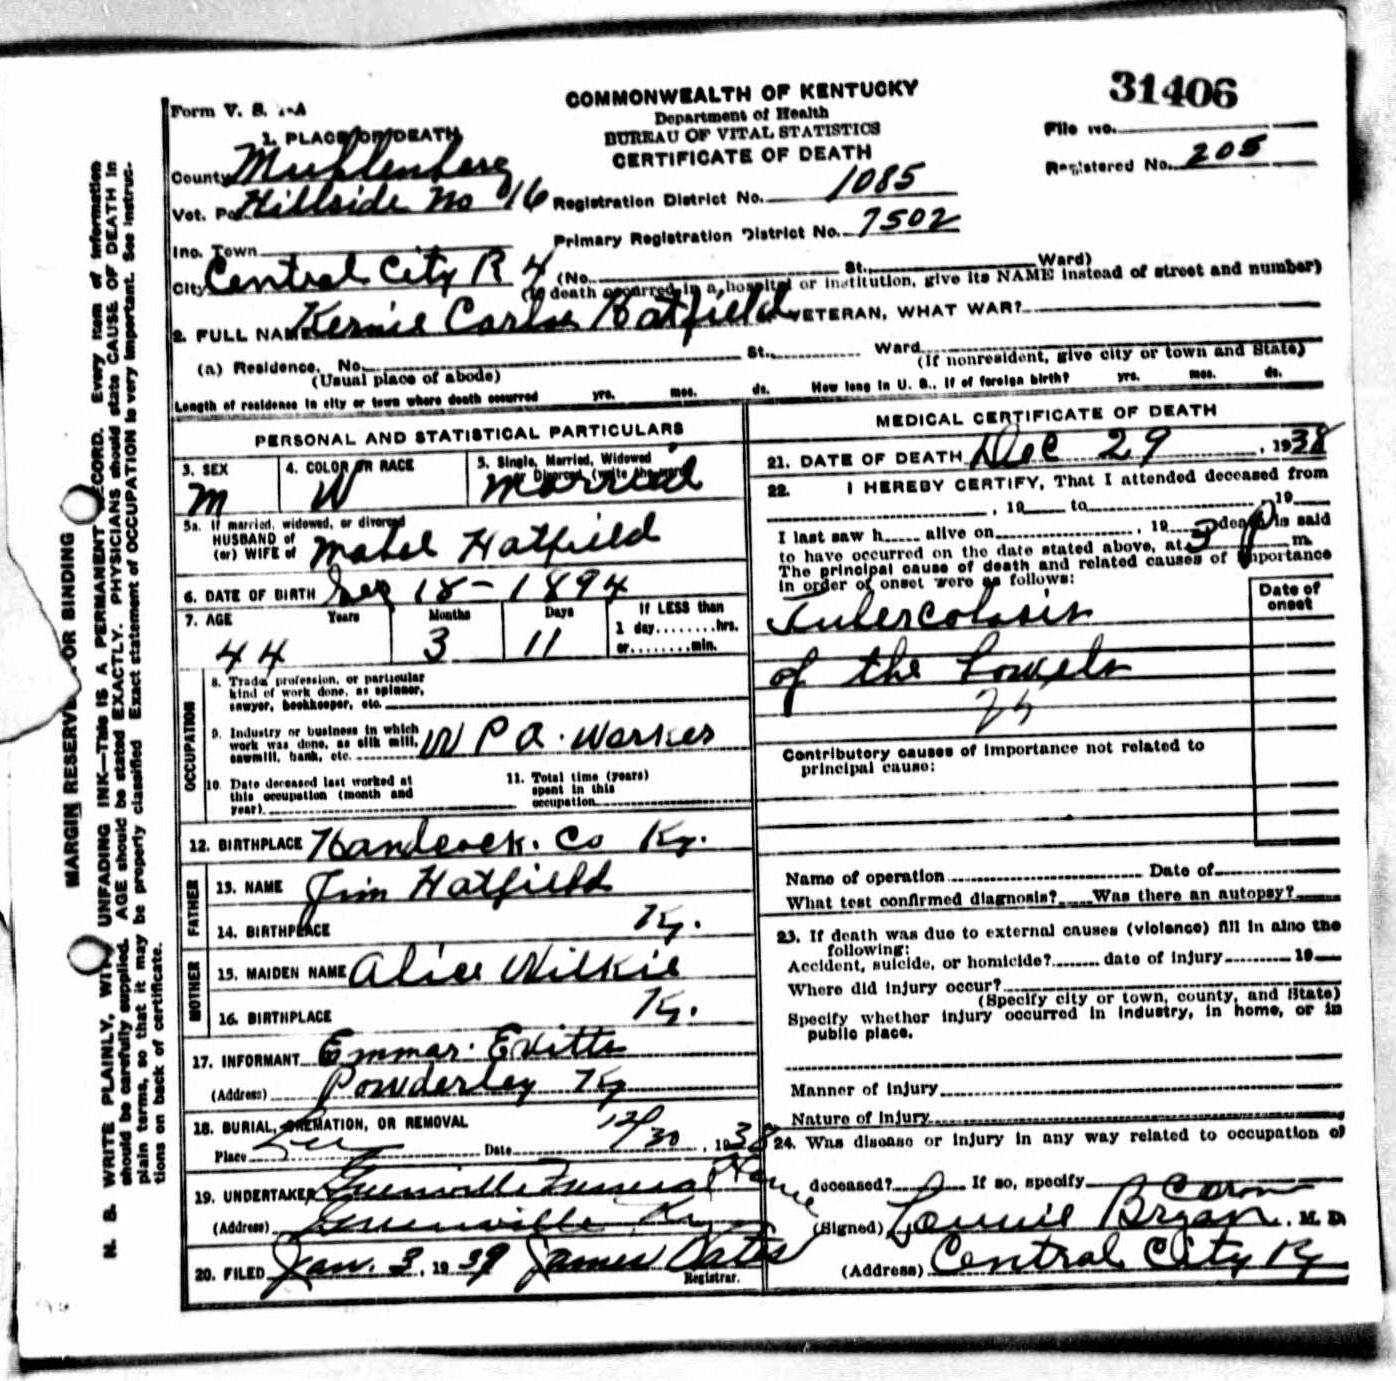 31406
Form V. S. 1-A
COMMONWEALTH OF KENTUCKY
Department of Health
BUREAU OF VITAL STATISTICS
CERTIFICATE OF DEATH
File No.
Registered No. 205
1. PLACE OF DEATH
County Muhlenberg
Vot. Pc Hillside No 16
Registration District No. 1085
Inc. Town
Primary Registration District No. 7502
City Central City R 4
(No. St. Ward)
(If death occurred in a hospital or institution, give its NAME instead of street and number)
2. FULL NAME Kernie Carlos Hatfield VETERAN, WHAT WAR?
(a) Residence. No. St. Ward
(Usual place of abode) (If nonresident, give city or town and State)
Length of residence in city or town where death occurred yrs. mos. ds. How long in U. S., if of foreign birth? yrs. mos. ds.
PERSONAL AND STATISTICAL PARTICULARS
3. SEX M
4. COLOR OR RACE W
5. Single, Married, Widowed
or Divorced (write the word)
Married
5a. If married, widowed, or divorced
HUSBAND of
(or) WIFE of Mabel Hatfield
6. DATE OF BIRTH Sep 18-1894
7. AGE Years Months Days If LESS than
1 day........hrs.
or........min.
44 3 11
OCCUPATION
8. Trade, profession, or particular
kind of work done, as spinner,
sawyer, bookkeeper, etc.
9. Industry or business in which
work was done, as silk mill,
sawmill, bank, etc. W P A. Worker
10. Date deceased last worked at
this occupation (month and
year)
11. Total time (years)
spent in this
occupation
12. BIRTHPLACE Handcock. Co Ky.
FATHER
13. NAME Jim Hatfield
14. BIRTHPLACE Ky.
MOTHER
15. MAIDEN NAME Alice Wilkie
16. BIRTHPLACE Ky.
17. INFORMANT Emmar. Evitts
(Address) Powderley Ky
18. BURIAL, CREMATION, OR REMOVAL
Place Date 12/30, 1938
19. UNDERTAKER Greenville Funeral Home
(Address) Greenville Ky
20. FILED Jan. 3, 1939 James Oates
Registrar.
MEDICAL CERTIFICATE OF DEATH
21. DATE OF DEATH Dec 29, 1938
22. I HEREBY CERTIFY, That I attended deceased from
, 19 to , 19
I last saw h alive on , 19 death is said
to have occurred on the date stated above, at 3 P m.
The principal cause of death and related causes of importance
in order of onset were as follows:
Date of
onset
Tubercolosis
of the bowels
25
Contributory causes of importance not related to
principal cause:
Name of operation Date of
What test confirmed diagnosis? Was there an autopsy?
23. If death was due to external causes (violence) fill in also the
following:
Accident, suicide, or homicide? date of injury 19
Where did injury occur?
(Specify city or town, county, and State)
Specify whether injury occurred in industry, in home, or in
public place.
Manner of injury
Nature of injury
24. Was disease or injury in any way related to occupation of
deceased? If so, specify
(Signed) Lonnie Bryan, M. D.
(Address) Central City Ky
MARGIN RESERVED FOR BINDING
N. B. WRITE PLAINLY, WITH UNFADING INK—This IS A PERMANENT RECORD. Every item of information
should be carefully supplied. AGE should be stated EXACTLY. PHYSICIANS should state CAUSE OF DEATH in
plain terms, so that it may be properly classified. Exact statement of OCCUPATION is very important. See instruc-
tions on back of certificate.